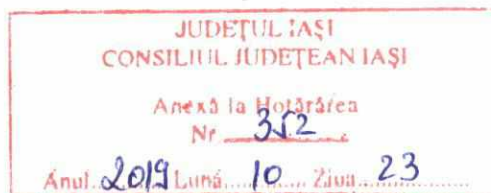 JUDEȚUL IAȘI
CONSILIUL JUDEȚEAN IAȘI
Anexă la Hotărârea
Nr. 352
Anul 2019 Luna 10 Ziua 23